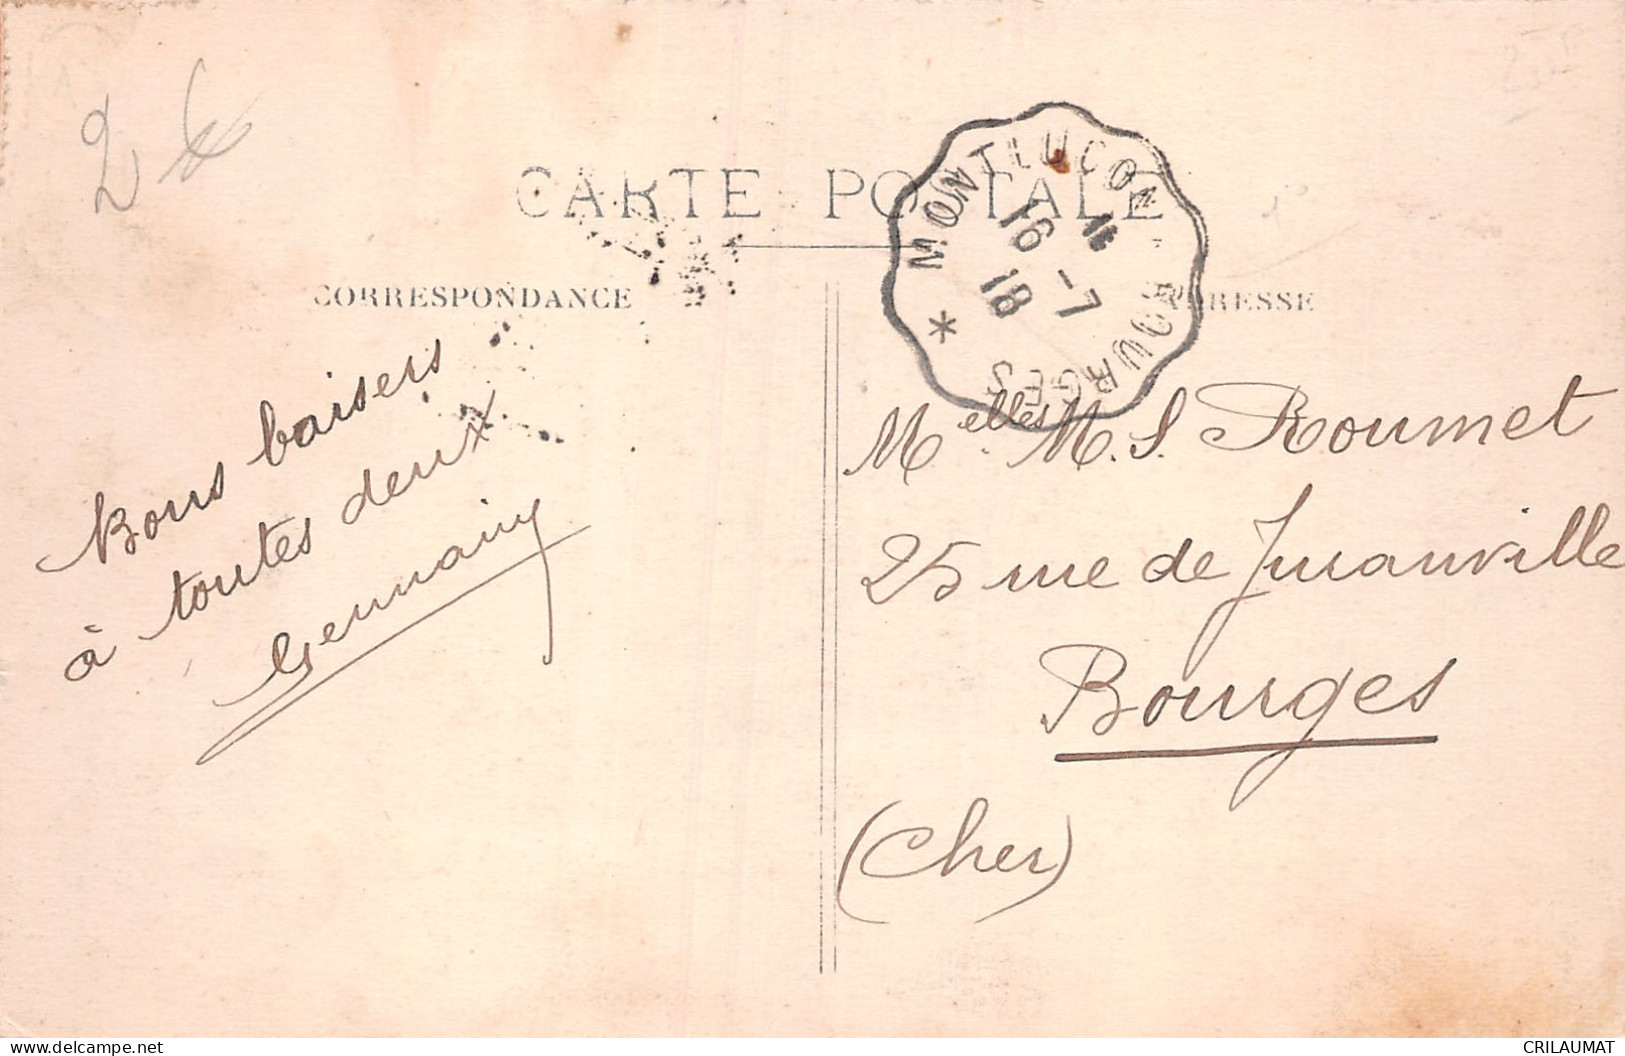 2€
CARTE POSTALE
MONTLUCON - BOURGES *
16 -7
18
CORRESPONDANCE
ADRESSE
Bons baisers
à toutes deux
Germainy
Melles M. S. Roumet
25 rue de Juranville
Bourges
(Cher)
delcampe.net
CRILAUMAT